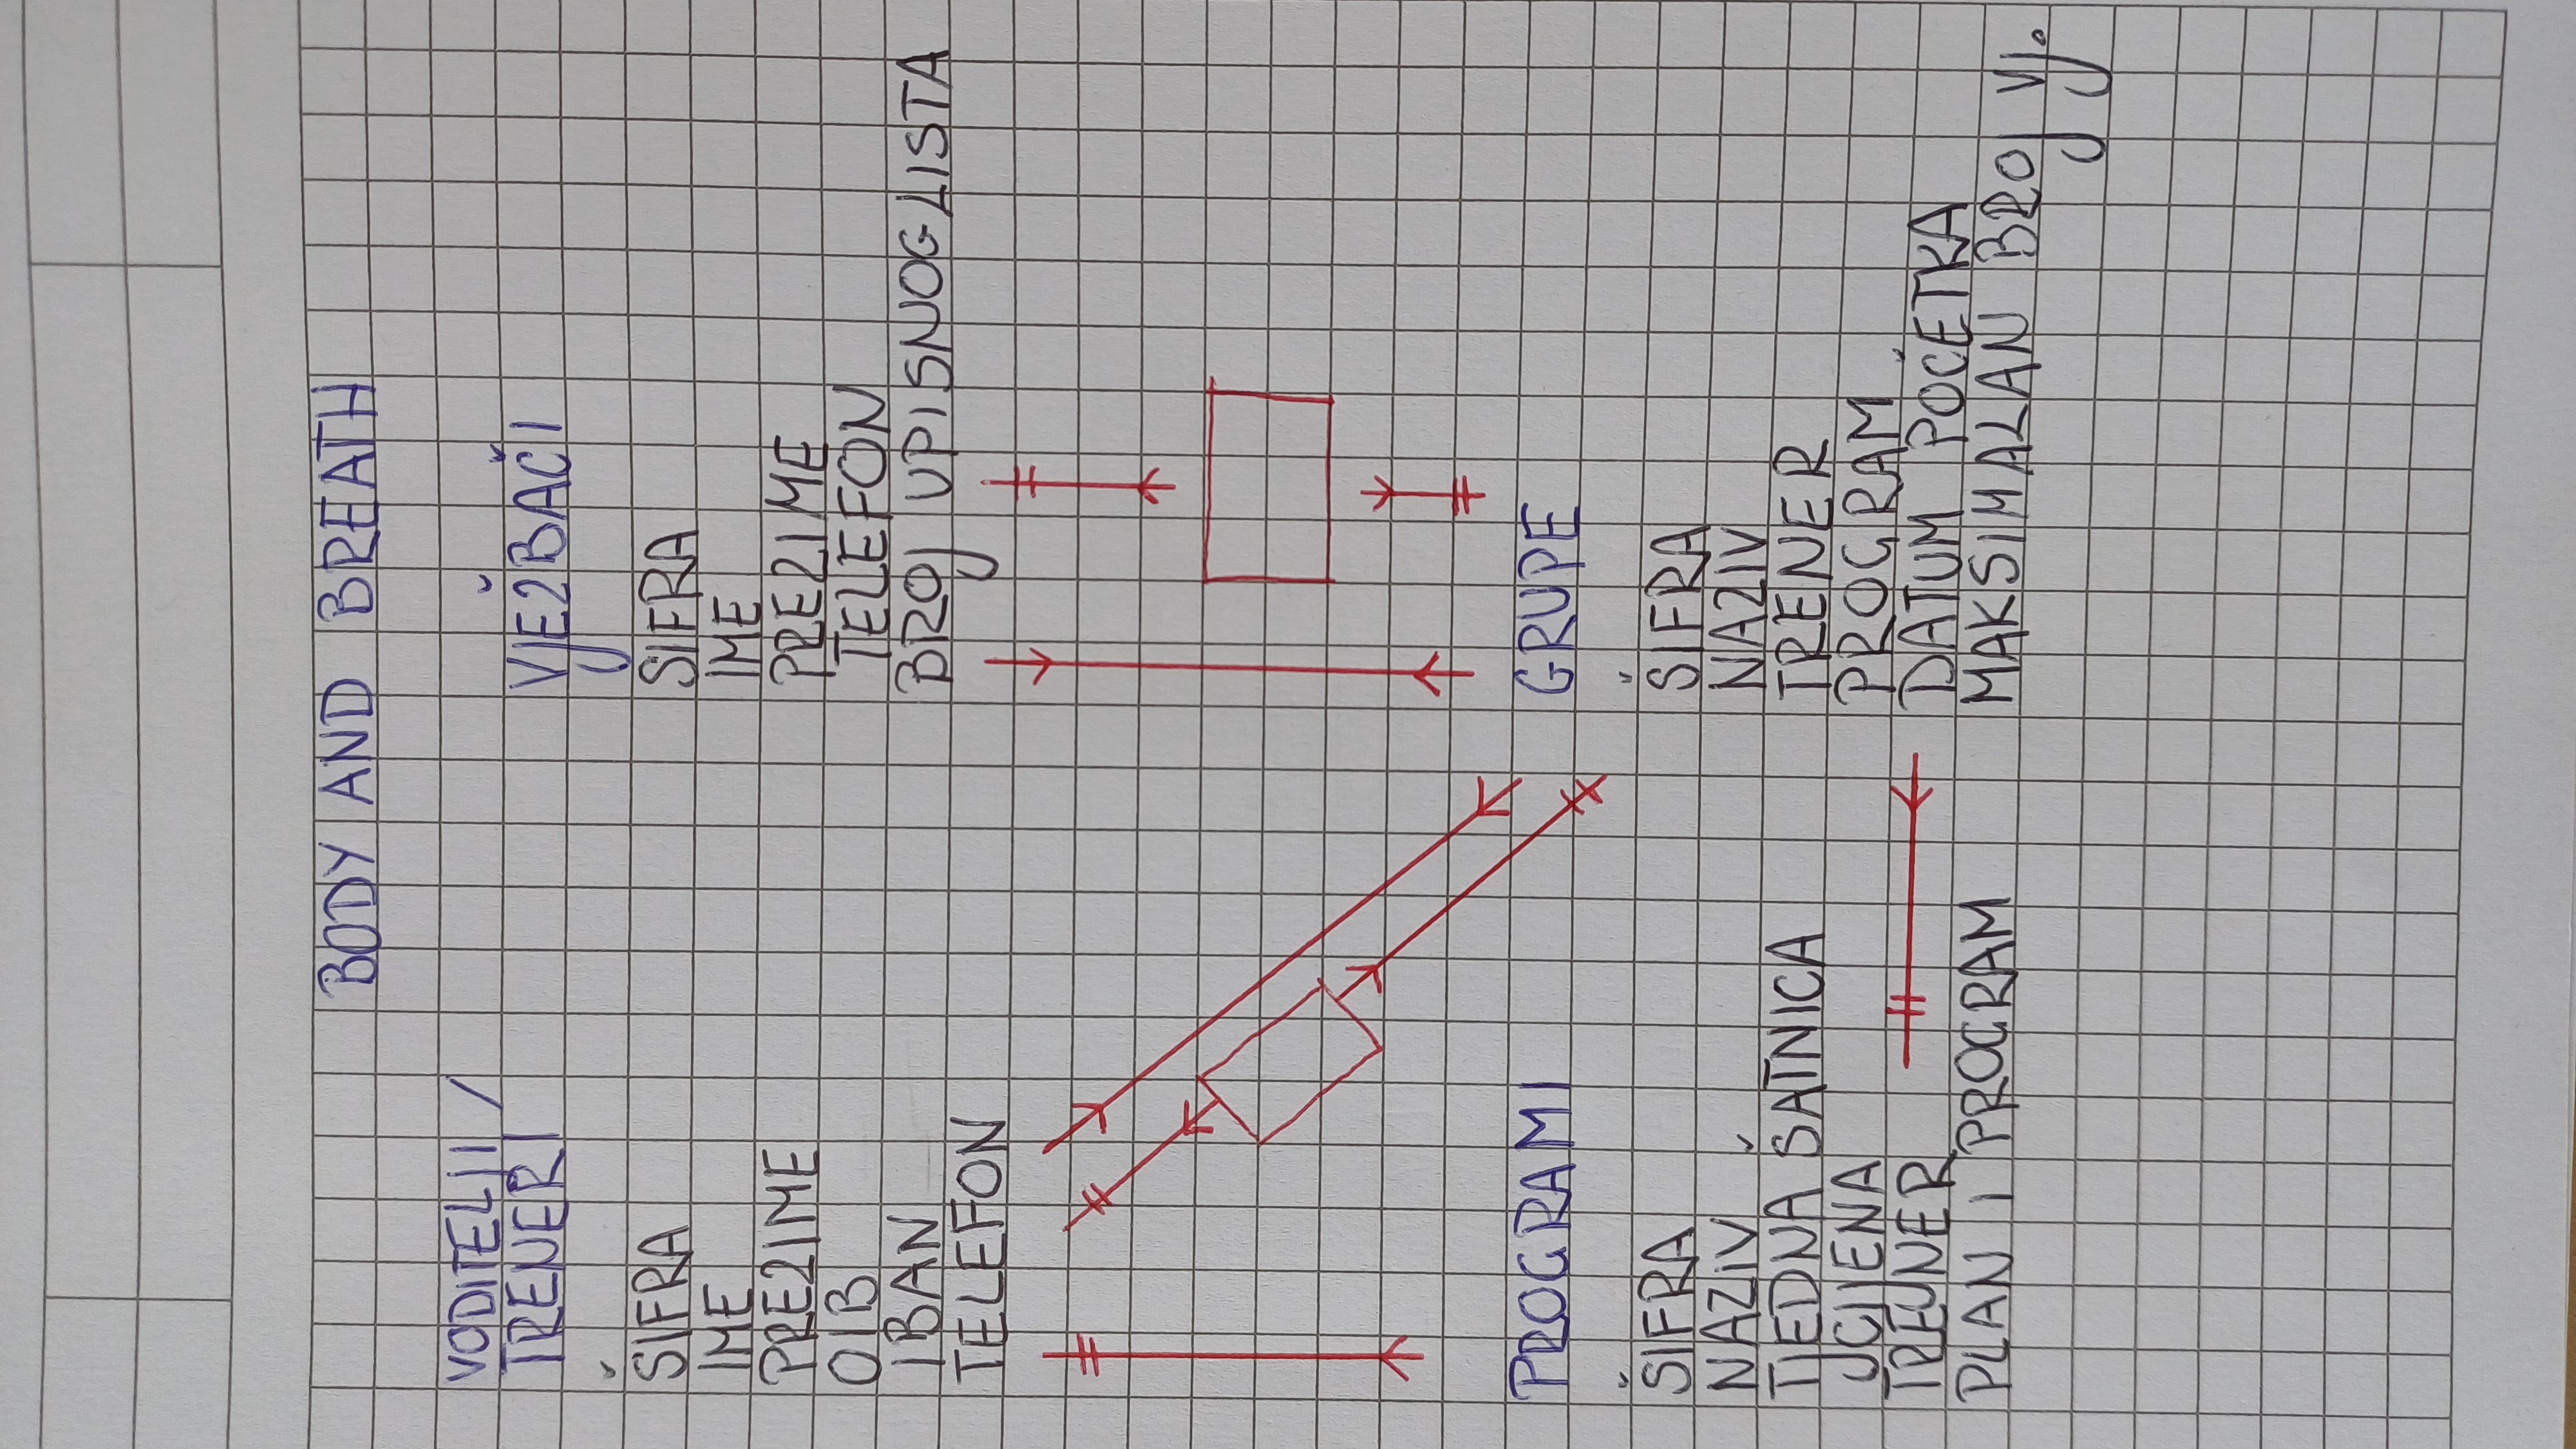 BODY AND BREATH
VODITELJI /
TRENERI
ŠIFRA
IME
PREZIME
OIB
IBAN
TELEFON
VJEŽBAČI
ŠIFRA
IME
PREZIME
TELEFON
BROJ UPISNOG LISTA
PROGRAMI
ŠIFRA
NAZIV
TJEDNA ŠATNICA
CIJENA
TRENER
PLAN I PROGRAM
GRUPE
ŠIFRA
NAZIV
TRENER
PROGRAM
DATUM POČETKA
MAKSIMALAN BROJ VJ.